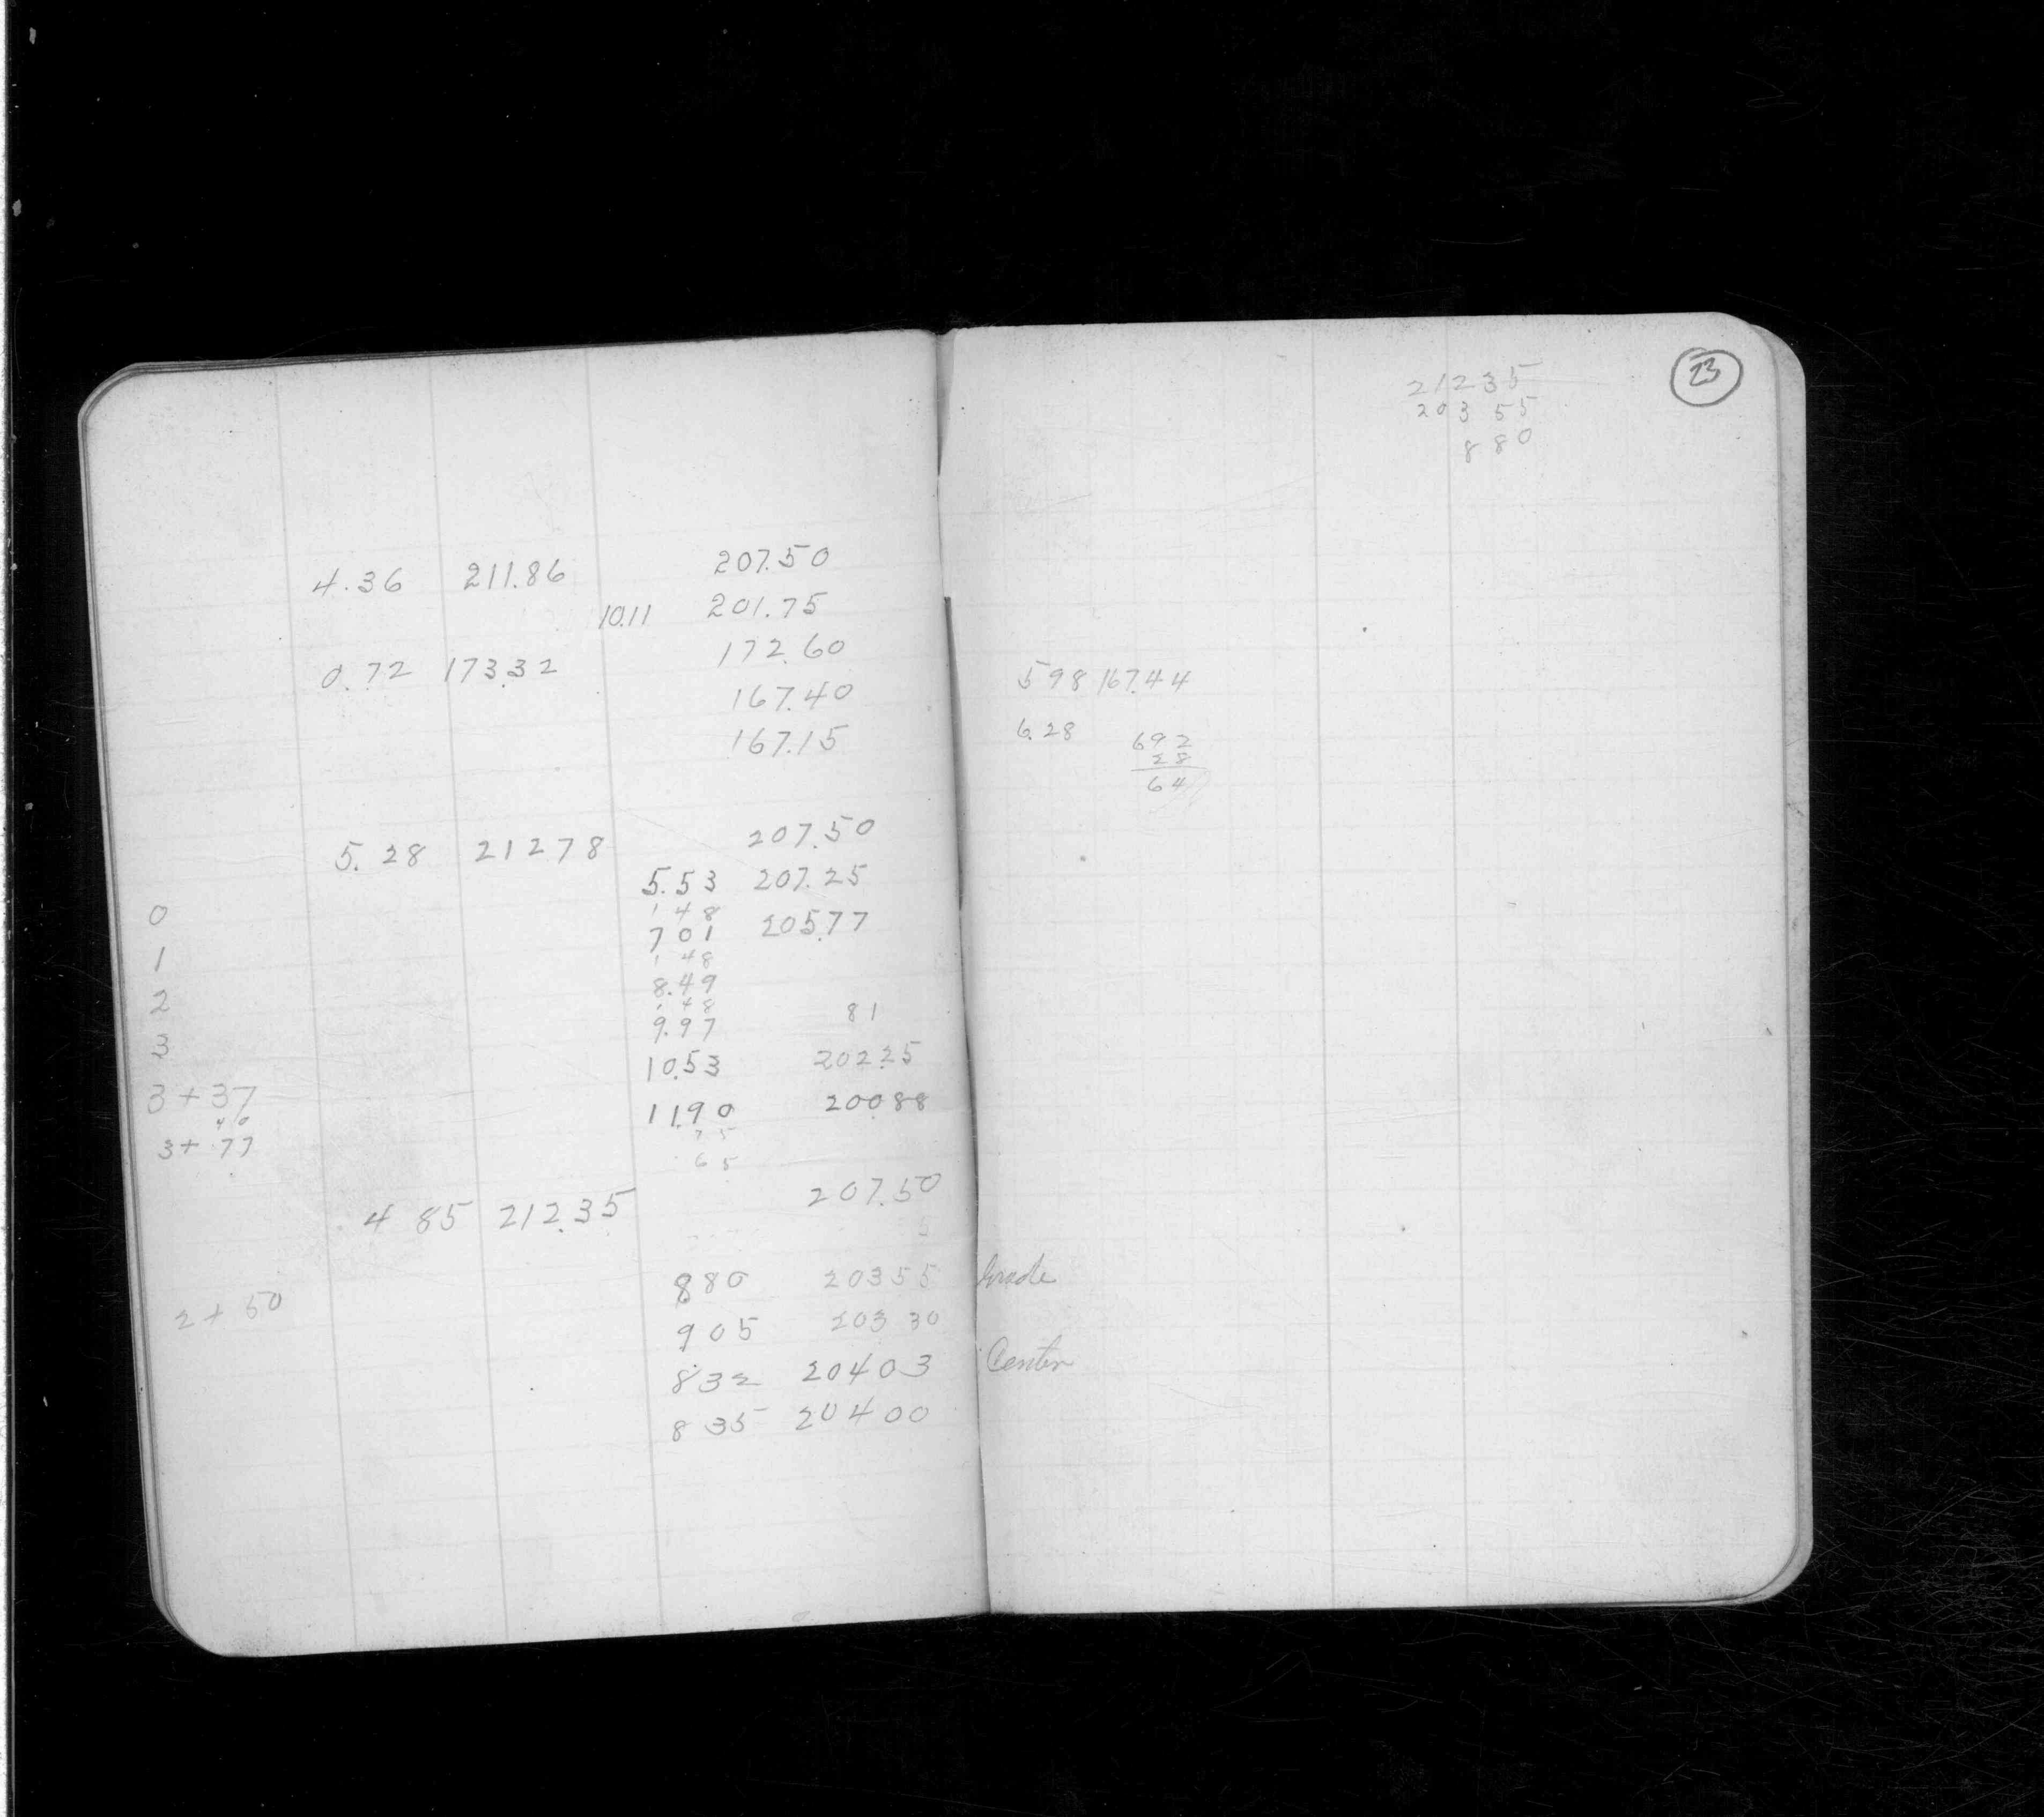 207.50
4.36 211.86
10.11 201.75
172.60
0.72 173.32
167.40
167.15
207.50
5.28 21278
5.53 207.25
0
1 48
701 205.77
1
1 48
8.49
2
1 48
9.97 81
3
10.53 202.25
3+37
11.90 200.88
40
3+77
75
65
207.50
4 85 212.35
880 20355
2+50
905 203 30
832 20403
835 20400
23
21235
203 55
880
598 167.44
6.28
692
28
64
Grade
Center